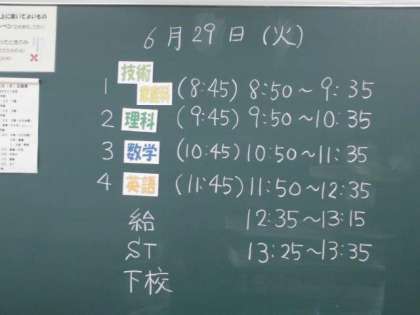 上に置いてよいもの
6月29日(火)
1 技術 家庭科 (8:45) 8:50～9:35
2 理科 (9:45) 9:50～10:35
3 数学 (10:45) 10:50～11:35
4 英語 (11:45) 11:50～12:35
給 12:35～13:15
ST 13:25～13:35
下校